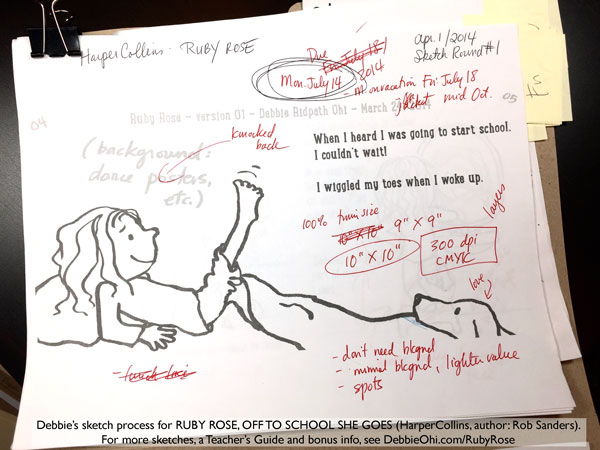 HarperCollins - RUBY ROSE
Apr. 1/2014
Sketch Round #1
Due
Fri July 18/
Mon. July 14 2014
- M. on vacation Fri July 18
mid Oct.
Ruby Rose - version 01 - Debbie Ridpath Ohi - March 2
04
05
knocked
back
(background:
dance posters,
etc.)
When I heard I was going to start school.
I couldn't wait!
I wiggled my toes when I woke up.
100% trim size
10" X 10" 9" X 9"
10" X 10"
layers
300 dpi
CMYK
love
- don't need bkgnd
- minimal bkgnd, lighter value
- spots
Debbie's sketch process for RUBY ROSE, OFF TO SCHOOL SHE GOES (HarperCollins, author: Rob Sanders).
For more sketches, a Teacher's Guide and bonus info, see DebbieOhi.com/RubyRose